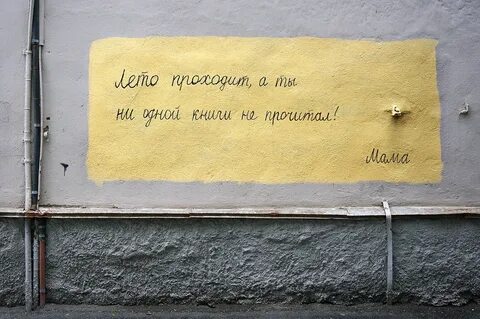 Лето проходит, а ты
ни одной книги не прочитал!
Мама